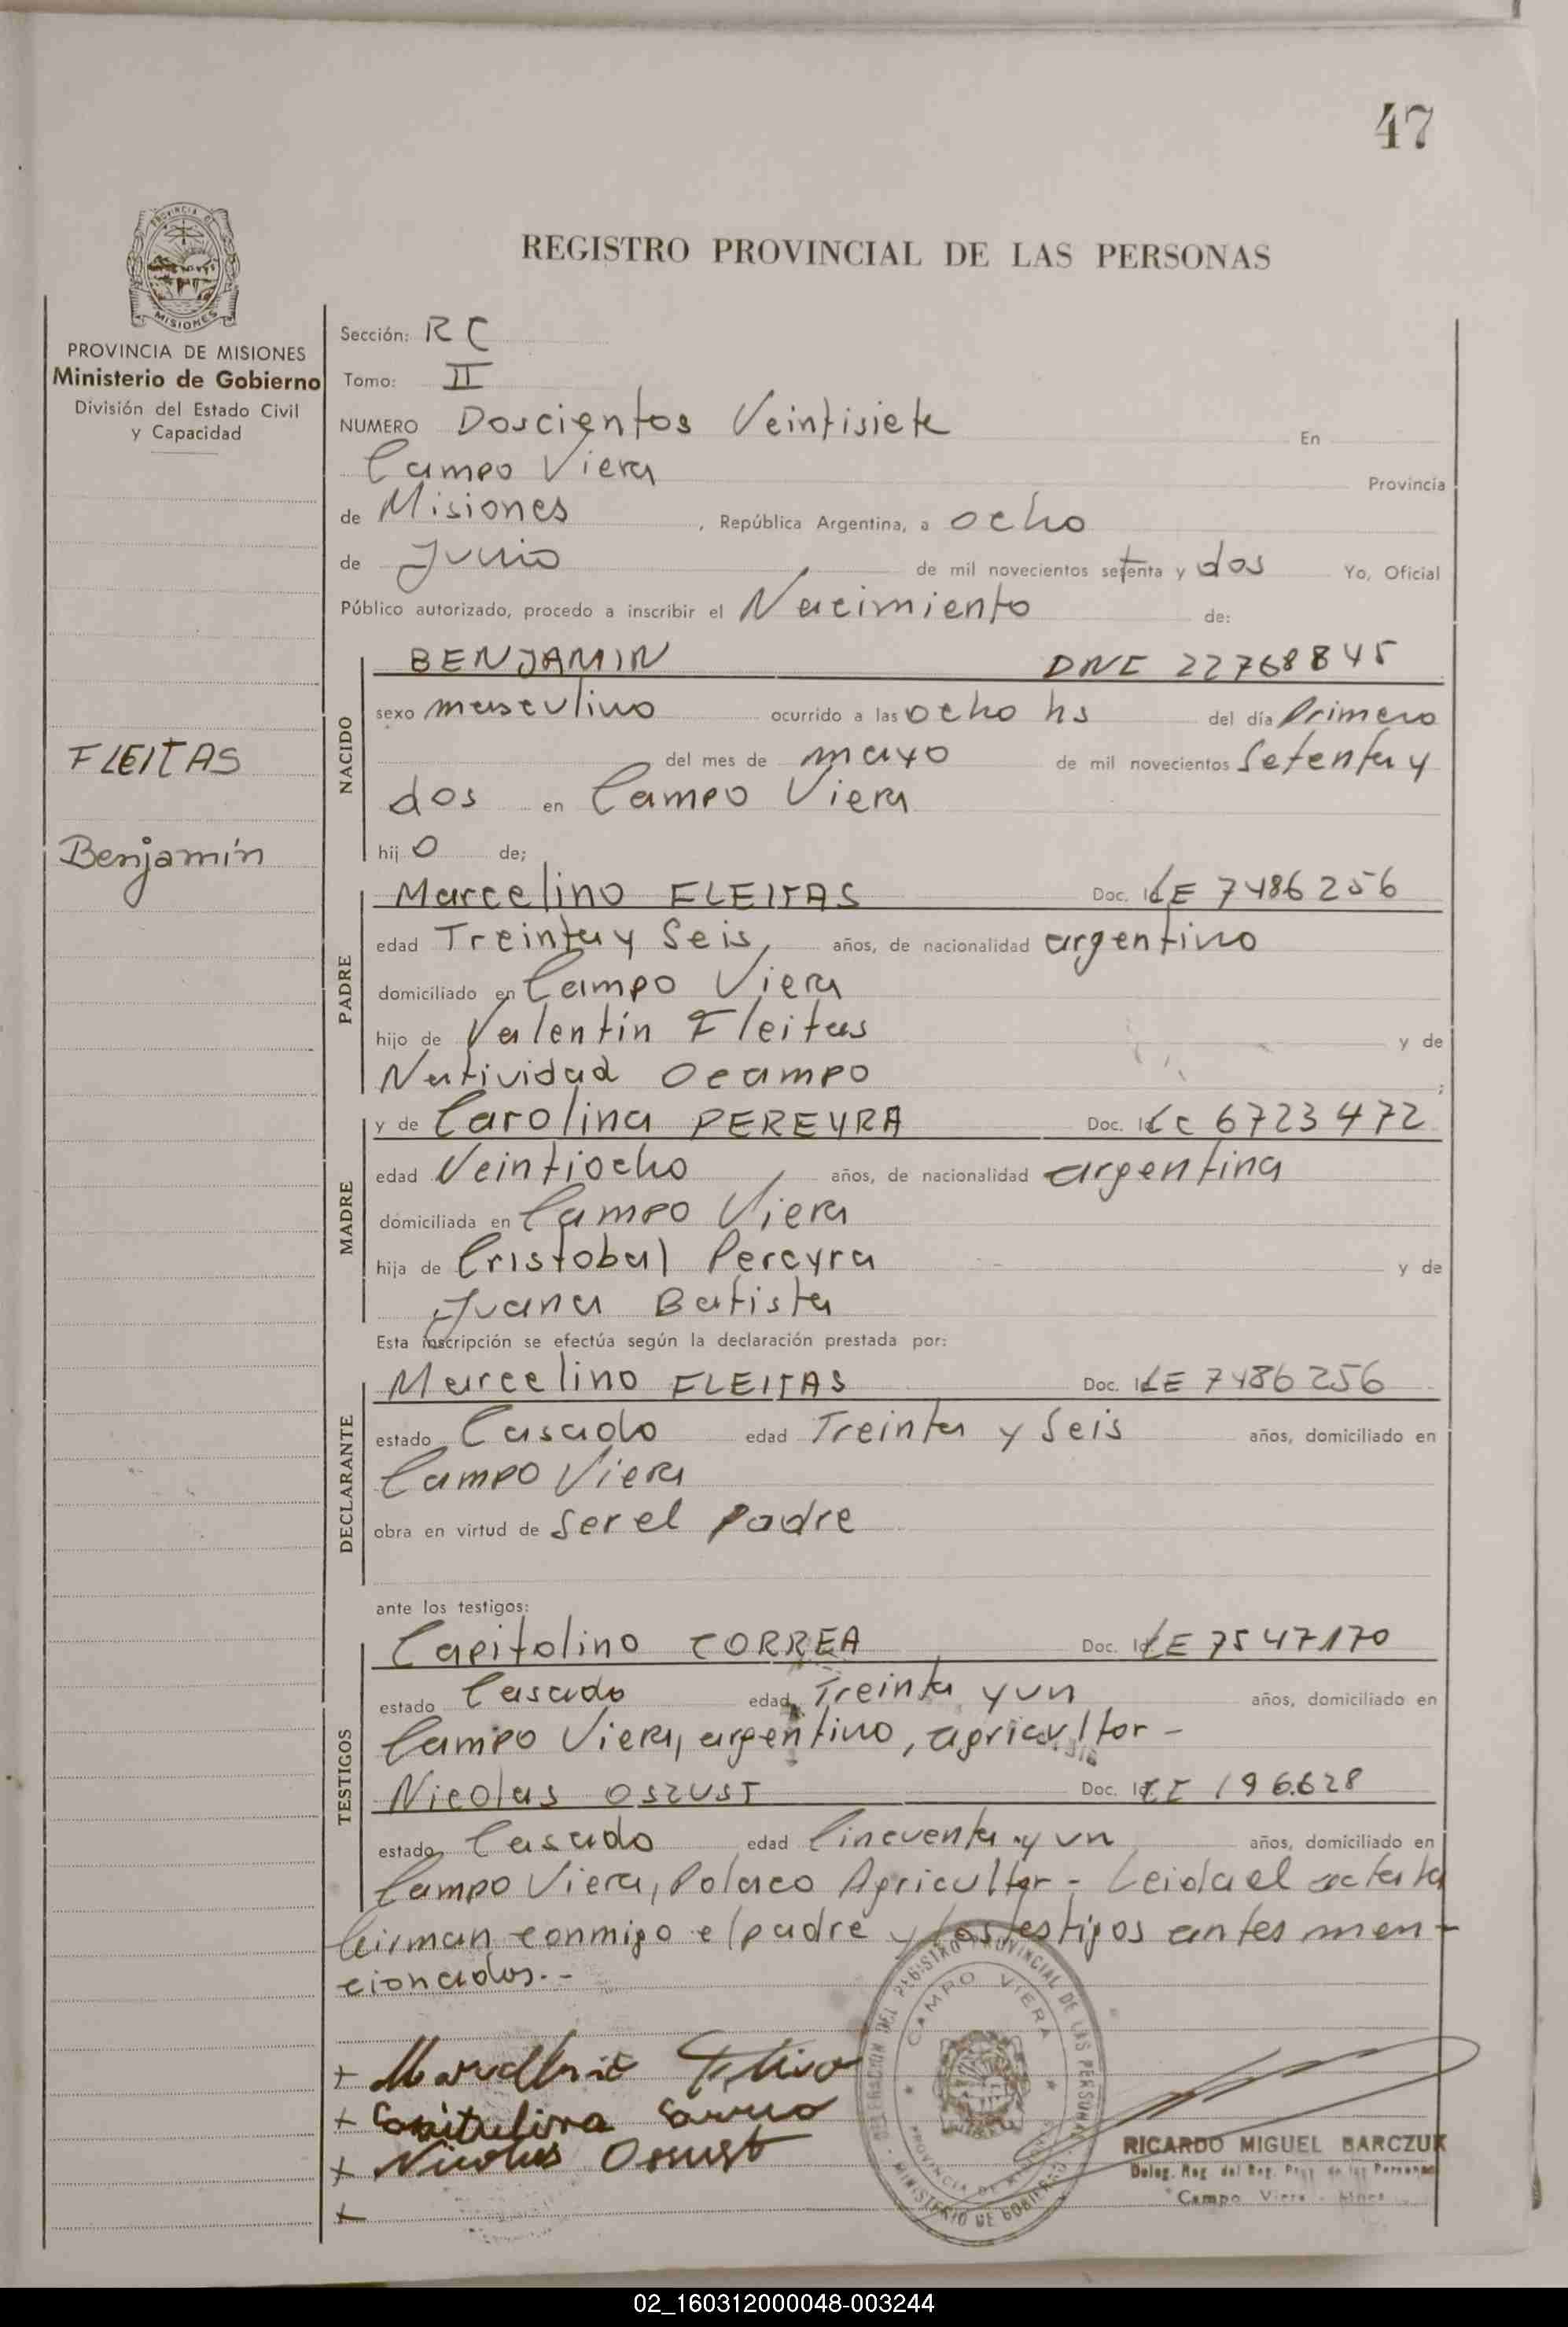 47
PROVINCIA DE
MISIONES
PROVINCIA DE MISIONES
Ministerio de Gobierno
División del Estado Civil
y Capacidad
FLEITAS
Benjamín
REGISTRO PROVINCIAL DE LAS PERSONAS
Sección: RC
Tomo: II
NUMERO Doscientos Veintisiete En
Campo Viera Provincia
de Misiones, República Argentina, a ocho
de Junio de mil novecientos setenta y dos Yo, Oficial
Público autorizado, procedo a inscribir el Nacimiento de:
NACIDO
BENJAMIN DNI 22768845
sexo masculino ocurrido a las ocho hs del día Primero
del mes de mayo de mil novecientos Setenta y
dos en Campo Viera
hijo de;
PADRE
Marcelino FLEITAS Doc. Id LE 7486256
edad Treinta y Seis, años, de nacionalidad argentino
domiciliado en Campo Viera
hijo de Valentín Fleitas y de
Natividad Ocampo ;
MADRE
y de Carolina PEREYRA Doc. Id LC 6723472
edad Veintiocho años, de nacionalidad argentina
domiciliada en Campo Viera
hija de Cristobal Pereyra y de
Juana Batista
Esta inscripción se efectúa según la declaración prestada por:
DECLARANTE
Marcelino FLEITAS Doc. Id LE 7486256
estado Casado edad Treinta y Seis años, domiciliado en
Campo Viera
obra en virtud de Ser el padre
ante los testigos:
TESTIGOS
Capitolino CORREA Doc. Id LE 7547170
estado Casado edad Treinta y un años, domiciliado en
Campo Viera, argentino, agricultor -
Nicolas OSZUST Doc. Id CI 196.628
estado Casado edad Cincuenta y un años, domiciliado en
Campo Viera, Polaco Agricultor - Leida el acta la
firman conmigo el padre y los testigos antes men-
cionados.-
+
+
+ Nicolas Oszust
+
DEL REGISTRO PROVINCIAL DE LAS PERSONAS
CAMPO VIERA
PROVINCIA DE MISIONES
MINISTERIO DE GOBIERNO
RICARDO MIGUEL BARCZUK
Deleg. Reg. del Reg. Prov. de las Personas
Campo Viera - Mnes
02_160312000048-003244